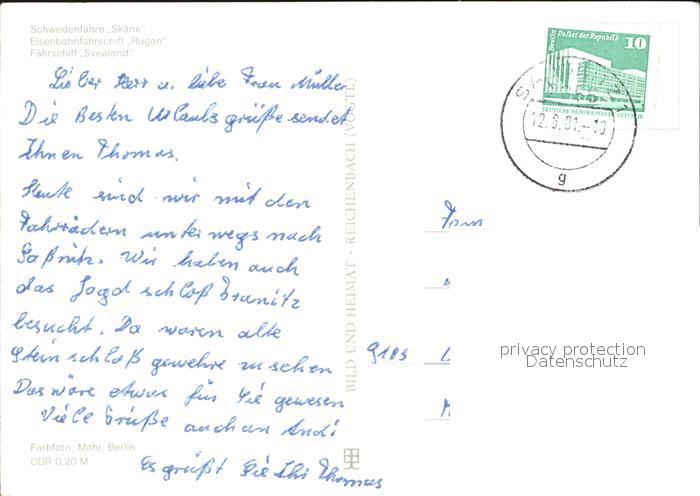 Schwedenfähre „Skåne"
Eisenbahnfährschiff „Rügen"
Fährschiff „Svealand"
Lieber Herr u. liebe Frau Müller
Die Besten Urlaubsgrüße sendet
Ihnen Thomas.
Heute sind wir mit den
Fahrrädern unterwegs nach
Saßnitz. Wir haben auch
das Jagdschloß Granitz
besucht. Da waren alte
Steinschloßgewehre zu sehen
Das wäre etwas für Sie gewesen
Viele Grüße auch an Andi
Es grüßt Sie Ihr Thomas
Farbfoto: Mohr, Berlin
DDR 0,20 M
BILD UND HEIMAT · REICHENBACH (VOGTL)
Berlin Palast der Republik
10
DEUTSCHE DEMOKRATISCHE REPUBLIK
12.6.81.-10
g
9103
privacy protection
Datenschutz